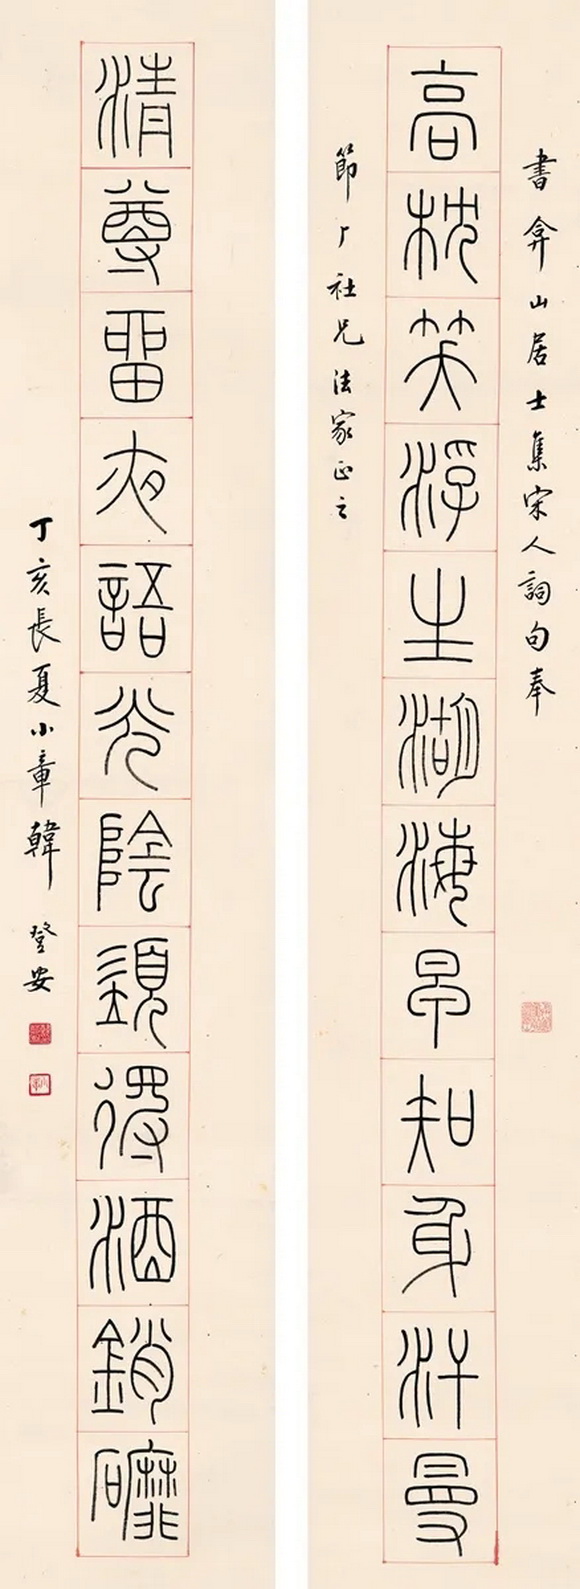 書弇山居士集宋人詞句奉
高枕笑浮生湖海早知身汗曼
節厂社兄法家正之
清尊畱夜語光陰須得酒銷䃺
丁亥長夏小章韓登安